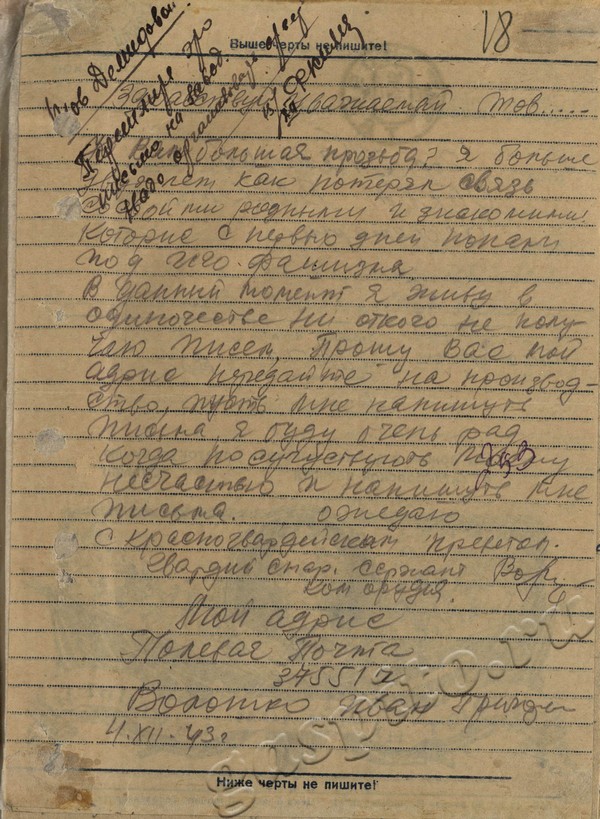 Выше черты не пишите!
18
тов Демидовой
Перешлите это
письмо на завод.
Надо организовать
Здравствуйте уважаемай тов.....
К Вам большая прозьба? Я больше
лет как потерял связь
с моими родными и знакомыми
которие с первых дней попали
под иго фашизма
В данний момент я живу в
одиночестве ни откого не полу-
чаю писем, Прошу Вас мой
адрис передайте на производ-
ство, пусть мне напишуть
письма я буду очень рад
когда посучуствують моему
несчастью и напишуть мне
письма. ожедаю
с Красногвардейскам приветом.
Гвардии стар. сержант
ком орудия.
Мой адрис
Полевая Почта
34551
Волошко Иван
4. XII. 43г
Ниже черты не пишите!